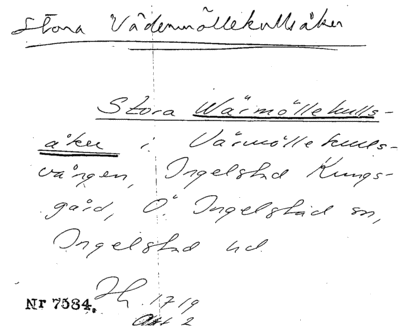 Stora Vädermöllekullsåker
Stora Wärmöllekulls-
åker i Värmöllekulls-
vången, Ingelstad Kungs-
gård, Ö Ingelstad sn,
Ingelstad hd.
Nr 7584. 1719
Akt 2